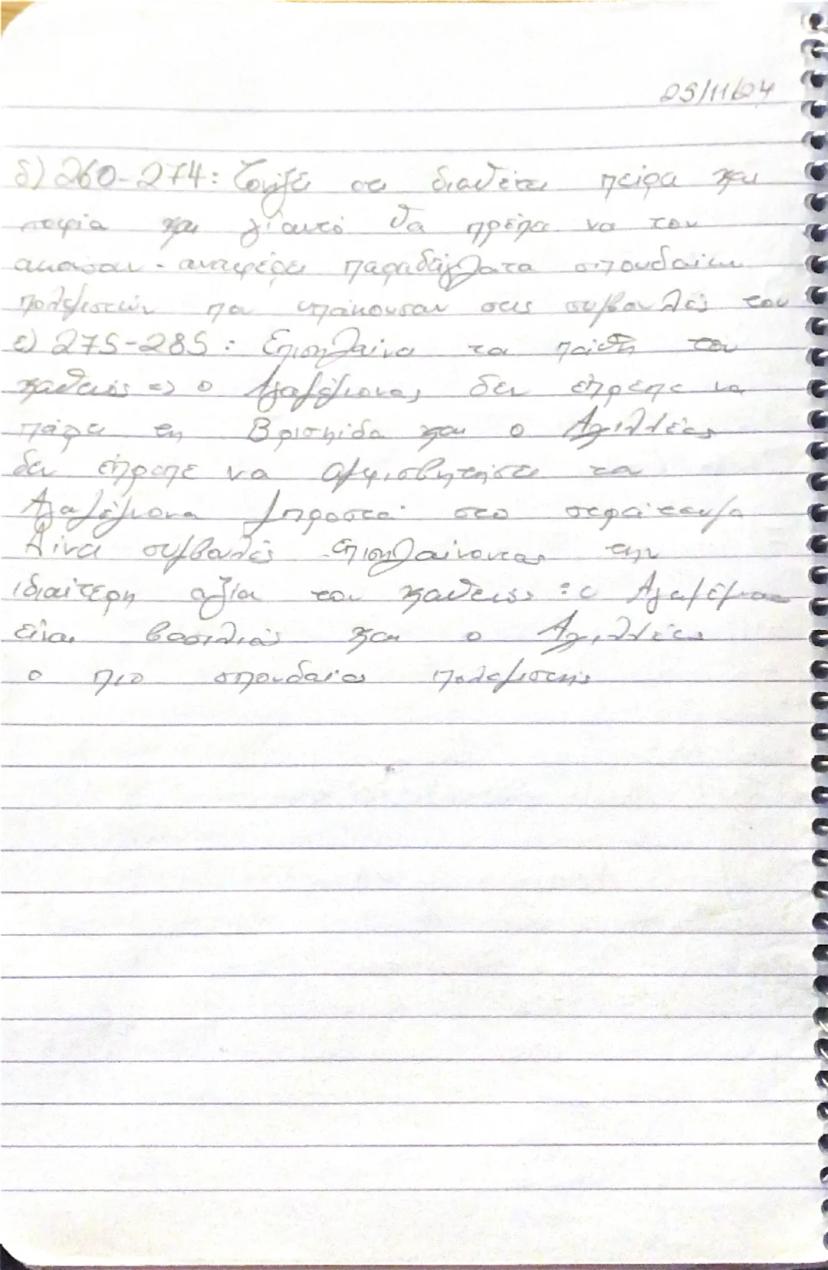 25/11/24
δ) 260-274: Τονίζει ότι διαθέτει πείρα και
σοφία και γι'αυτό θα πρέπει να τον
ακούσουν - αναφέρει παραδείγματα σπουδαίων
πολεμιστών που υπάκουσαν στις συμβουλές του
ε) 275-285: Επισημαίνει τα πάθη του
καθενός => ο Αγαμέμνονας δεν έπρεπε να
πάρει τη Βρισηίδα και ο Αχιλλέας
δεν έπρεπε να αμφισβητήσει τον
Αγαμέμνονα μπροστά στο στράτευμα
Δίνει συμβουλές επισημαίνοντας την
ιδιαίτερη αξία του καθενός: ο Αγαμέμνονας
είναι βασιλιάς και ο Αχιλλέας
ο πιο σπουδαίος πολεμιστής